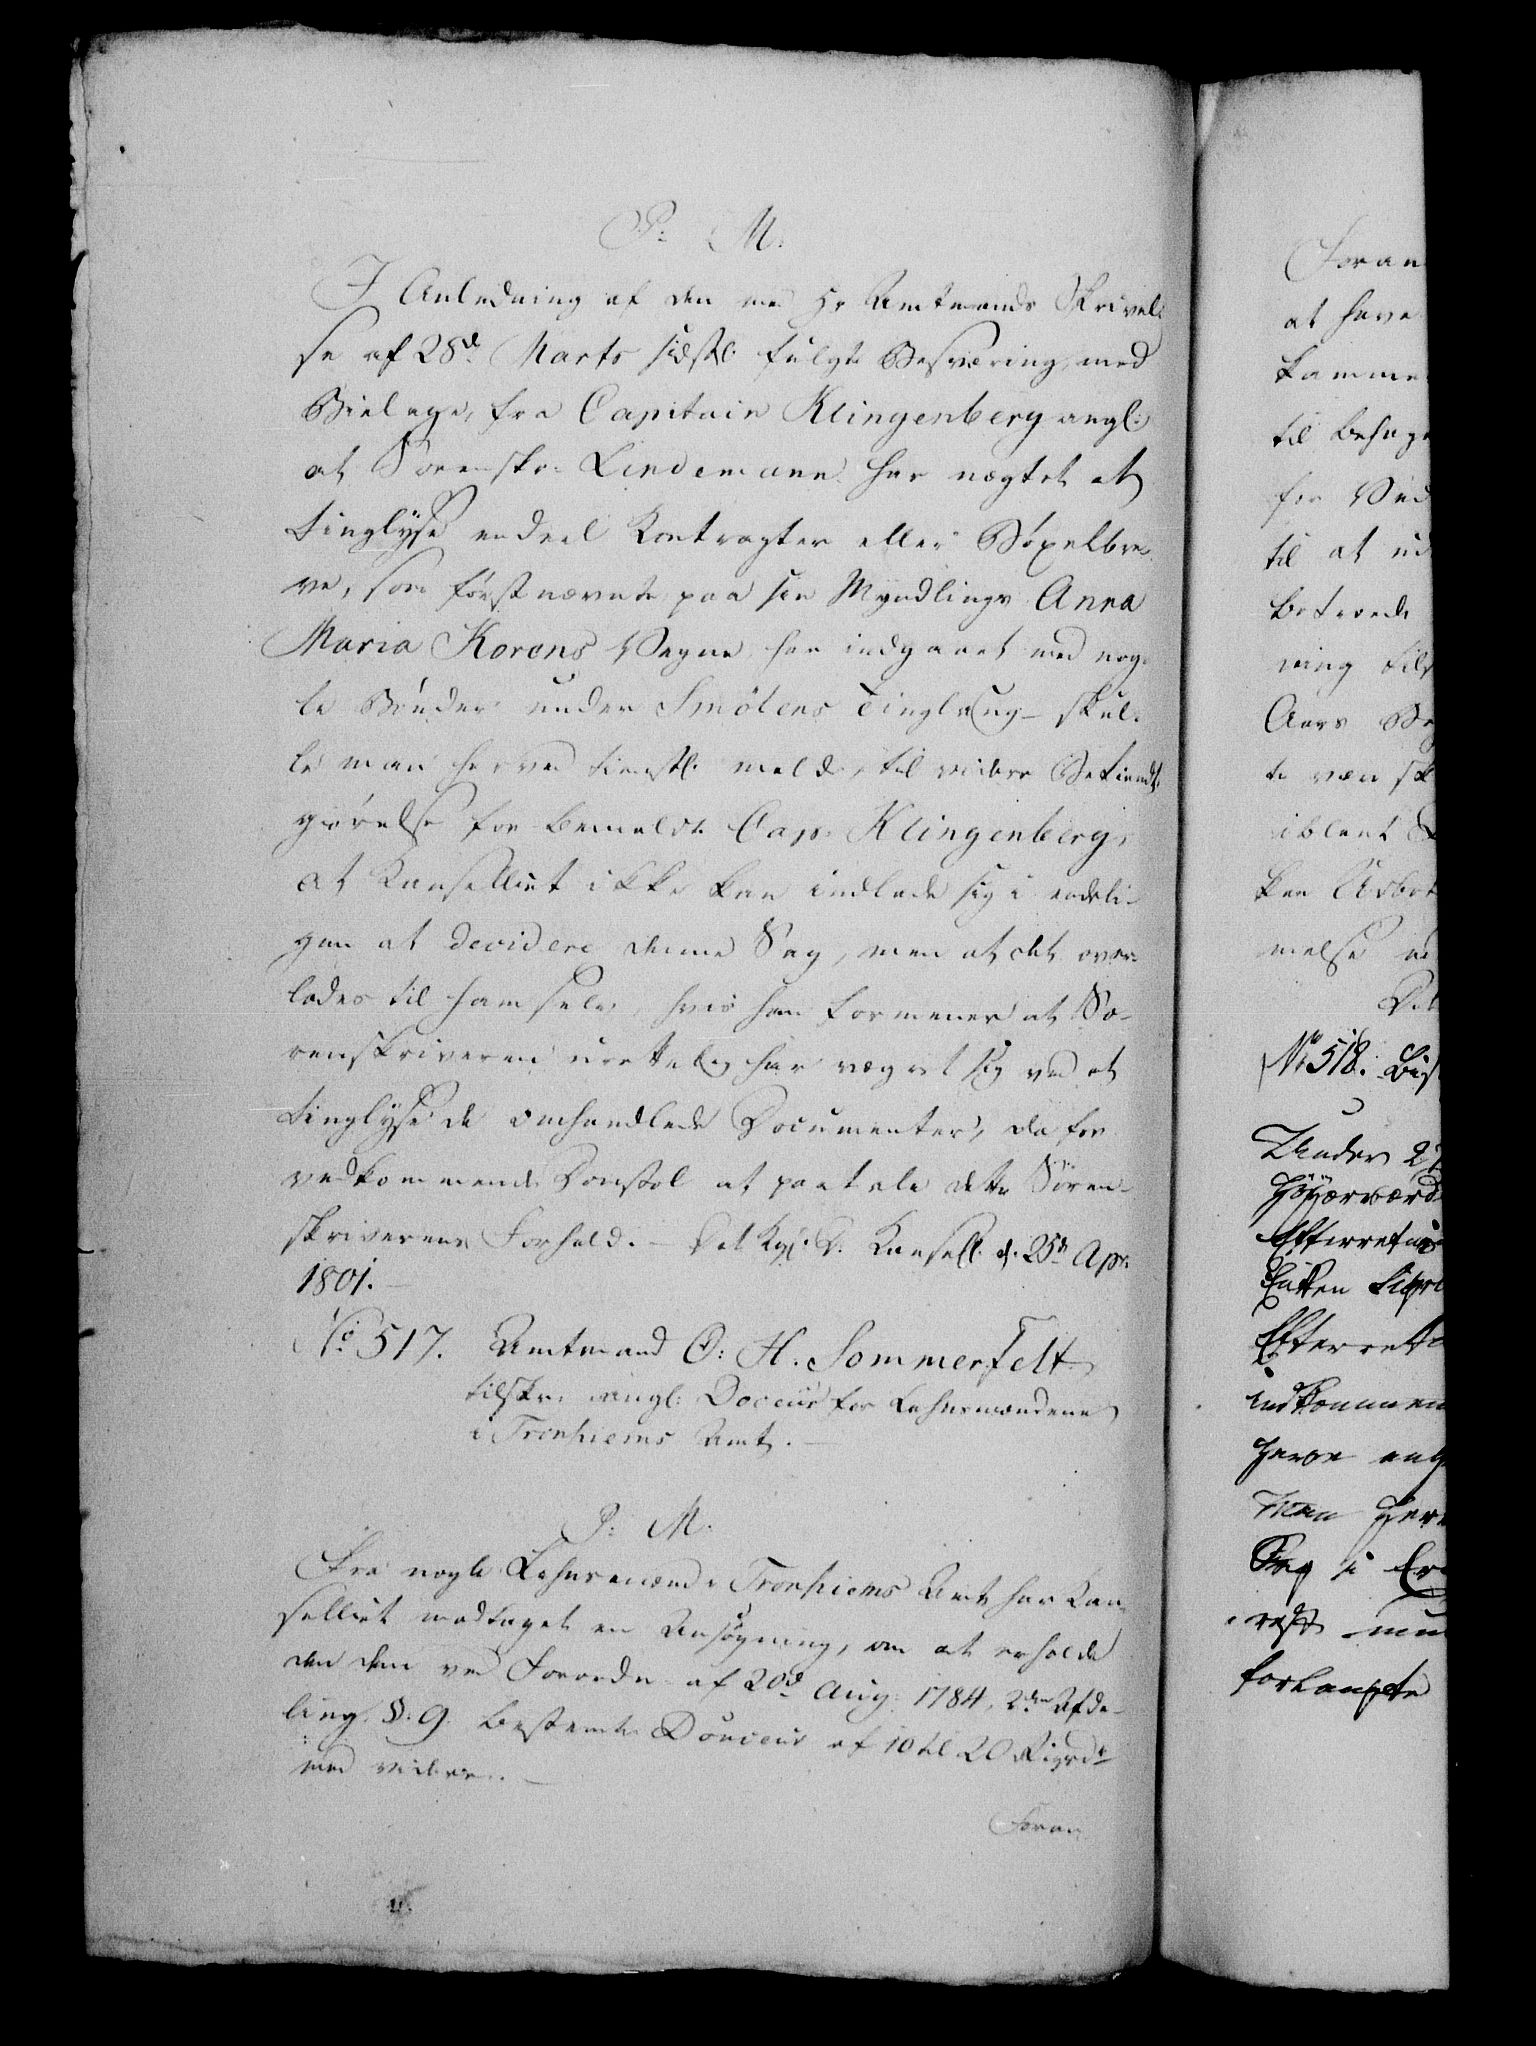 P: M:
I Anledning af den med Hr Amtmands Skrivel-
se af 28d Marts sidstl: fulgte Besværing, med
Bielage, fra Capitain Klingenberg angl:
at Sorenskr: Lindemann har nægtet at
tinglyse endeel Kontragter eller Bøxelbre-
ve, som førstnævnte paa sin Myndlings Anna
Maria Korens Vegne har indgaaet med nog-
le Bønder under Smölens Tinglaug - skul-
le man herved tienstl: melde, til videre Bekiendt-
giørelse for bemeldte Cap: Klingenberg,
at Kanselliet ikke kan indlade sig i endeli-
gen at decidere denne Sag, men at det over-
lades til ham selv, hvis han formener at So-
renskriveren urettelig har vægret sig ved at
tinglyse de omhandlede Documenter, da for
vedkommende Domstol at paatale dette Sören-
skriverens Forhold. - Det Kgl: D: Kansell: d: 25de Apr:
1801. -
No 517. Amtmand O: H. Sommerfelt
tilskr: angl: Doceur for Lehnsmændene
i Tronhiems Amt. -
P: M.
Fra nogle Lehnsmænd i Tronhiems Amt har Kan-
selliet modtaget en Ansøgning, om at erholde
den dem ved Forordn: af 20d Aug: 1784, 2den Afde-
ling §. 9. bestemte Douceur af 10 til 20 Rigsdr
med videre. -
Foran
Foran
at have
Kamme
til behage
for
til at ud
Betroede
ning til
Aars
te
iblant
ken Arbei
melse
No 518. Bis
Under 2
Høyærværd
Efterretni
Enken Sigri
Efterrette
indkommen
herom
Man her
Sag i Er
forlangte